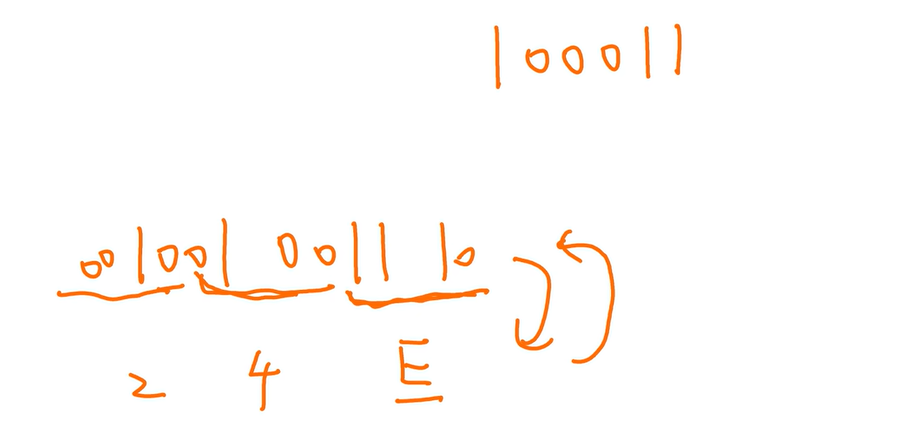 100011
001001001110
2 4 E